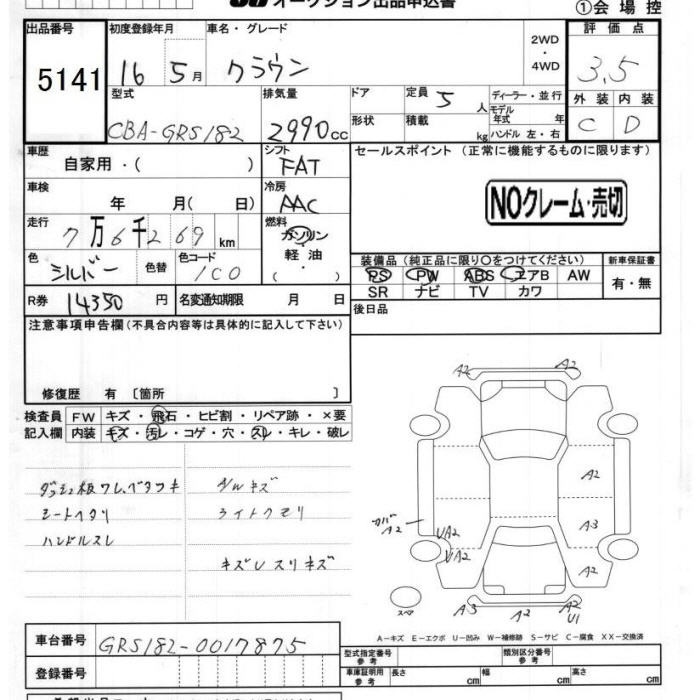 オークション出品申込書
①会場控
出品番号 初度登録年月 車名・グレード 評価点
5141 16 5月 クラウン 2WD・4WD 3.5
型式 排気量 ドア 定員 5人 ディーラー・並行 外装 内装
CBA-GRS182 2990cc 形状 積載 kg モデル年式 年 C D
ハンドル 左・右
車歴 シフト セールスポイント (正常に機能するものに限ります)
自家用・( ) FAT
車検 冷房
年 月( 日) AAC NOクレーム・売切
走行 燃料
7万6千269km ガソリン
色 色替 色コード 軽油 装備品 (純正品に限り○をつけてください) 新車保証書
シルバー 1C0 ・( ) PS PW ABS エアB AW 有・無
R券 14350円 名変通知期限 月 日 SR ナビ TV カワ
注意事項申告欄 (不具合内容等は具体的に記入して下さい) 後日品
修復歴 有 〔箇所 〕
検査員 FW キズ・飛石・ヒビ割・リペア跡・×要
記入欄 内装 キズ・汚レ・コゲ・穴・スレ・キレ・破レ
A2 A2
ダッシュ板ワレ、ベタツキ A/Wキズ A2
シートヘタリ ライトクモリ カバーA2 UA2 A3
ハンドルスレ UA2 A2
キズレスリキズ
スペア A3 A2 A2 U1
A－キズ E－エクボ U－凹み W－補修跡 S－サビ C－腐食 XX－交換済
車台番号 GRS182-0017875
型式指定番号 参考 類別区分番号 参考
登録番号 車庫証明用 参考 長さ cm 幅 cm 高さ cm